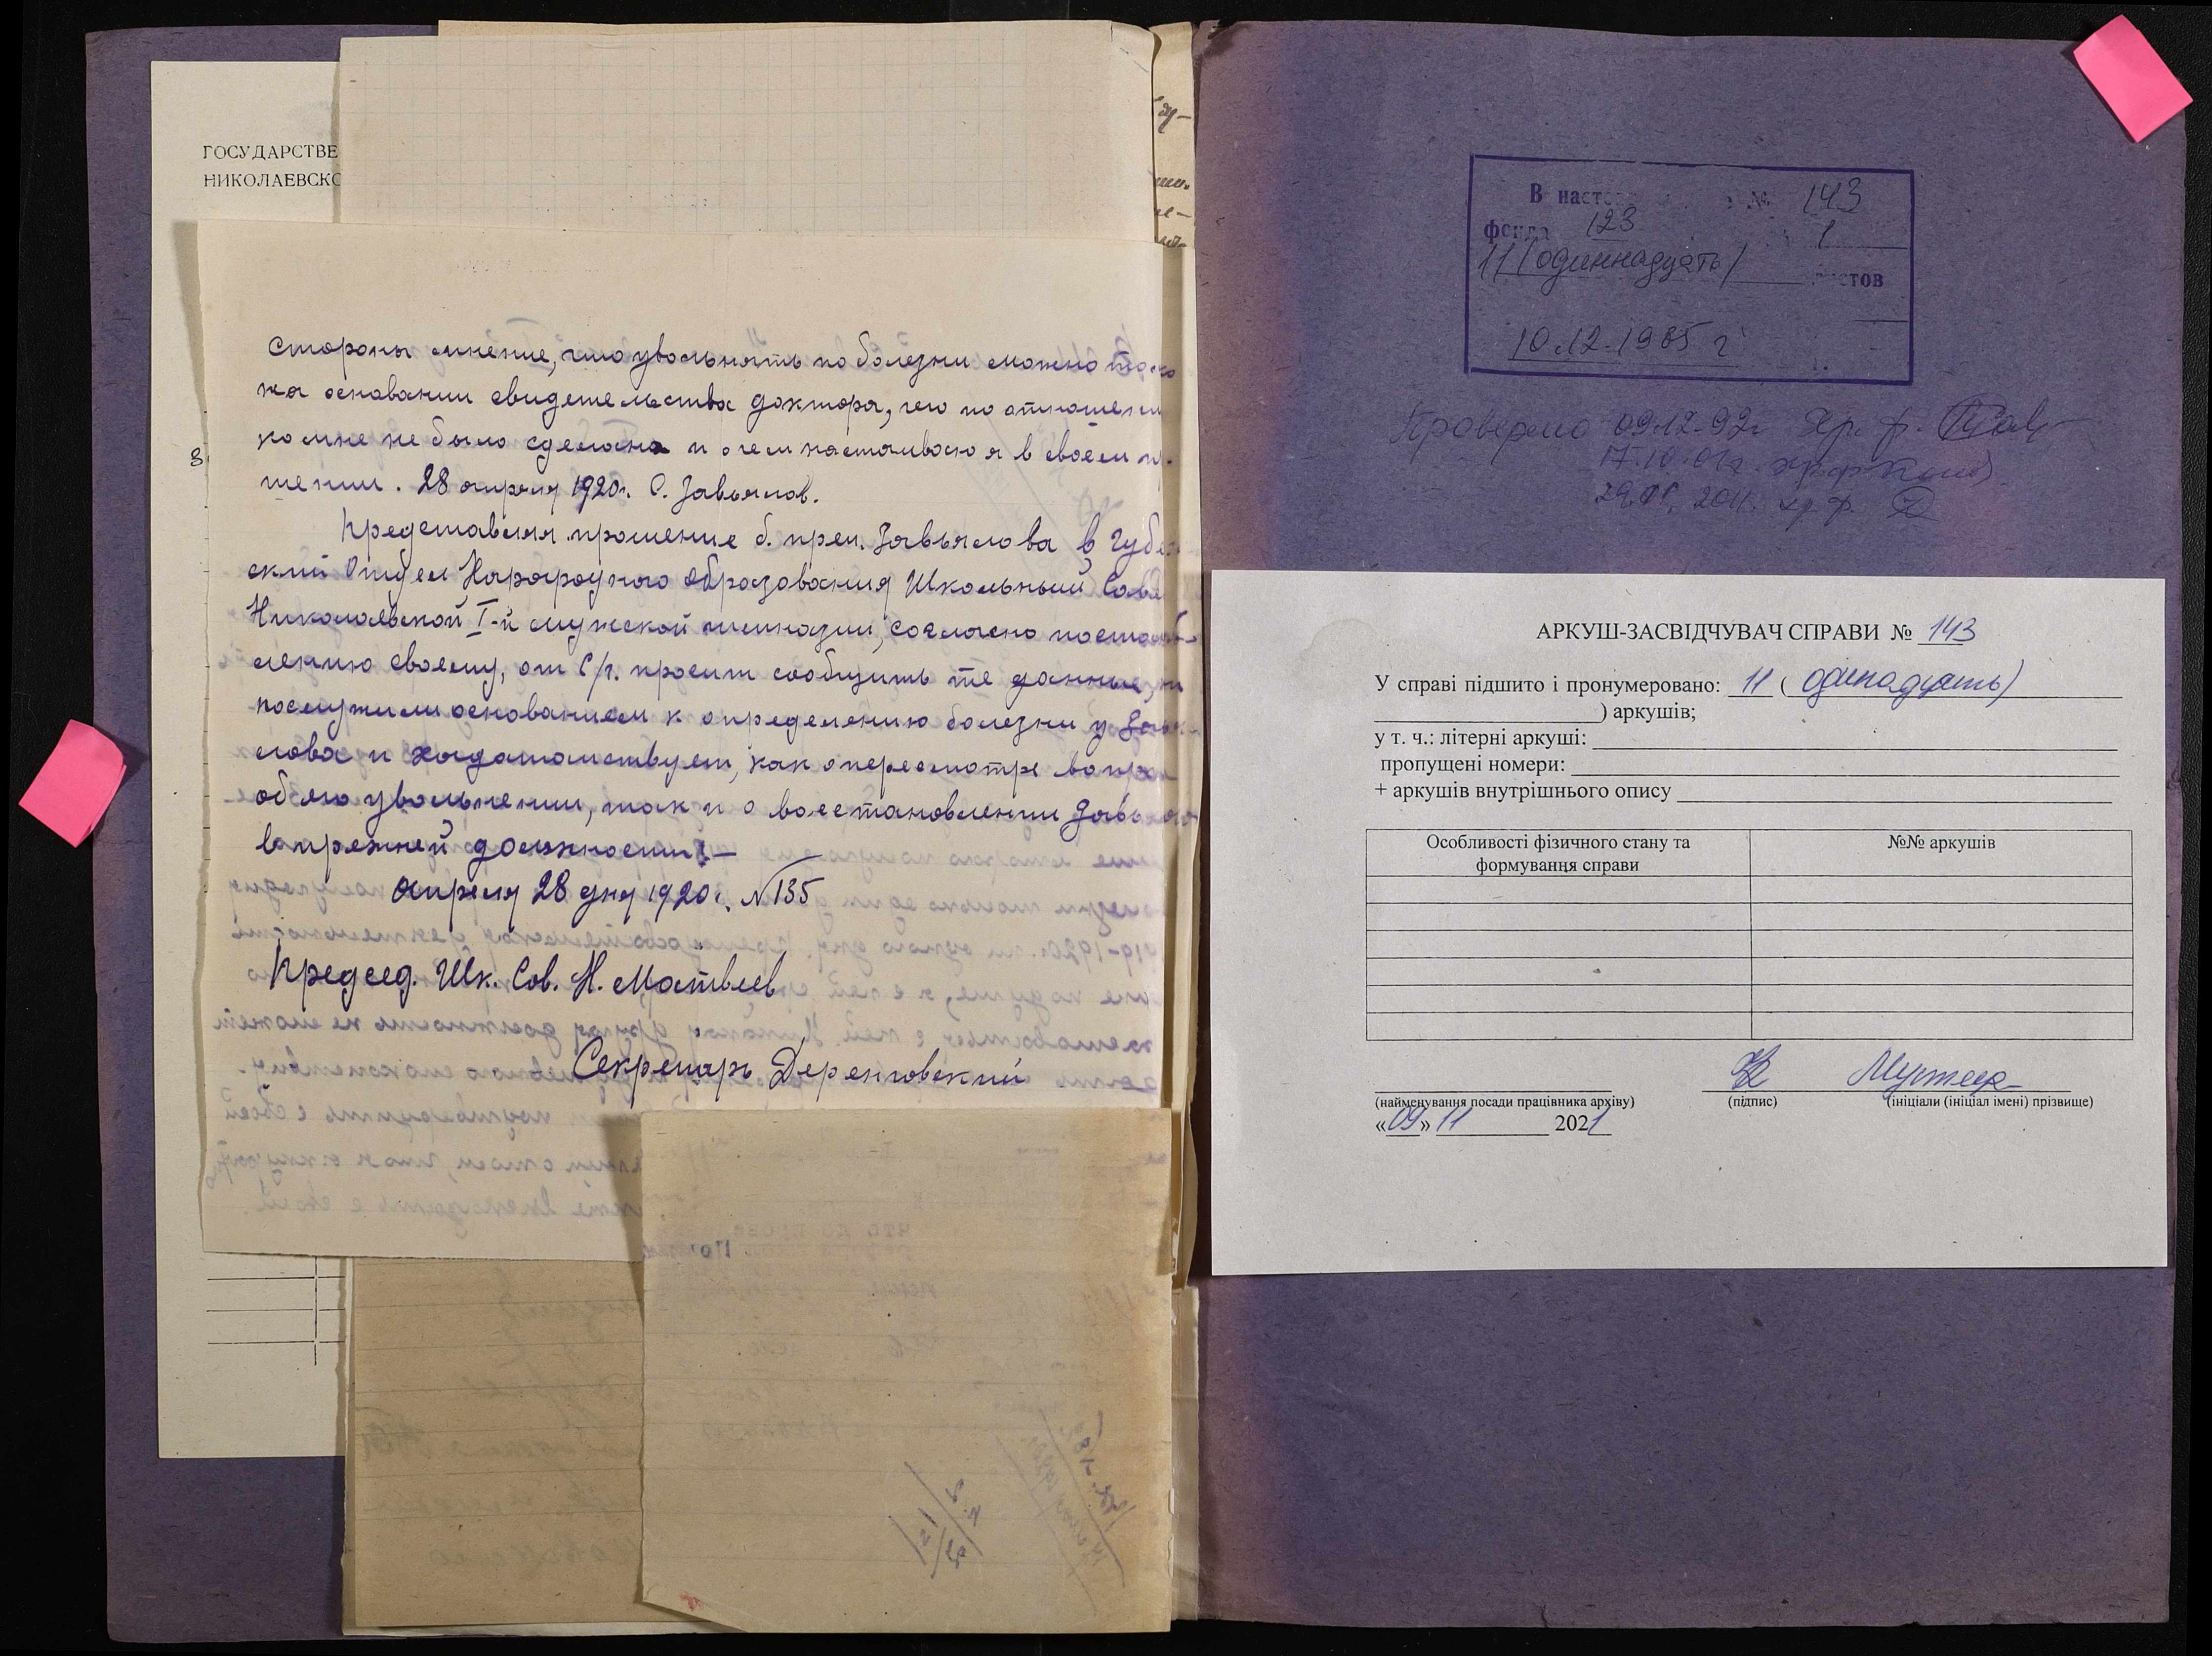 ГОСУДАРСТВЕ
НИКОЛАЕВСКО
стороны мнение, что увольнять по болезни можно
на основании свидетельства доктора, чего по отношени
ко мне не было сделано и о чем настаиваю я в своем
шении. 28 апреля 1920г. С. Завьялов.
Представляя прошение б. преп. Завьялова в Губ
ский Отдел Народного Образования Школьный Сове
Николаевской I-й мужской гимназии, согласно постанов-
лению своему, от с/г. просит сообщить те данные,
послужили основанием к определению болезни у Завь
лова и ходатайствует, как о пересмотре вопро
об его увольнении, так и о восстановлении Завь
в прежней должности.—
Апреля 28 дня 1920г. №135
Председ. Шк. Сов. Н. Матвеев
Секретарь Деренговский
В наст № 143
фонда 123 1
11 (одиннадцать) листов
10.12.1985 г
Проверено 09.12.92г хр. ф.
17.10.01г. хр.ф
29. 2011. хр. ф.
АРКУШ-ЗАСВІДЧУВАЧ СПРАВИ № 143
У справі підшито і пронумеровано: 11 ( одинадцять)
) аркушів;
у т. ч.: літерні аркуші:
пропущені номери:
+ аркушів внутрішнього опису
Особливості фізичного стану та формування справи
№№ аркушів
(найменування посади працівника архіву) (підпис) (ініціали (ініціал імені) прізвище)
«09» 11 2021